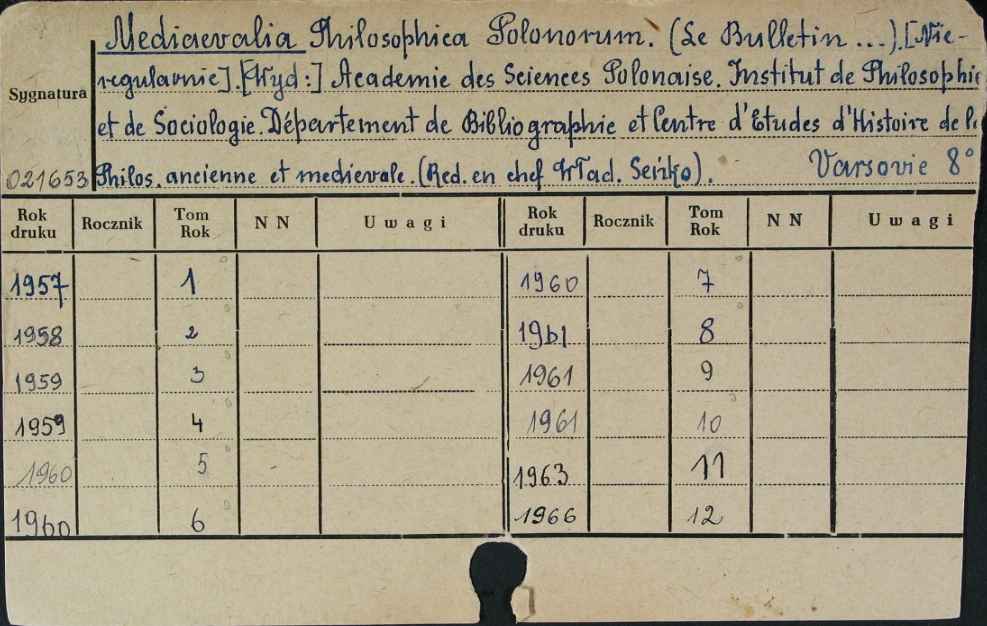 Mediaevalia Philosophica Polonorum. (Le Bulletin ...). [Nie-
regularnie]. [Wyd:] Academie des Sciences Polonaise. Institut de Philosophie
Sygnatura
et de Sociologie. Département de Bibliographie et Centre d'Etudes d'Histoire de la
021653 Philos. ancienne et medievale. (Red. en chef Wład. Seńko). Varsovie 8°
Rok druku Rocznik Tom Rok NN Uwagi Rok druku Rocznik Tom Rok NN Uwagi
1957 1 1960 7
1958 2 1961 8
1959 3 1961 9
1959 4 1961 10
1960 5 1963 11
1960 6 1966 12